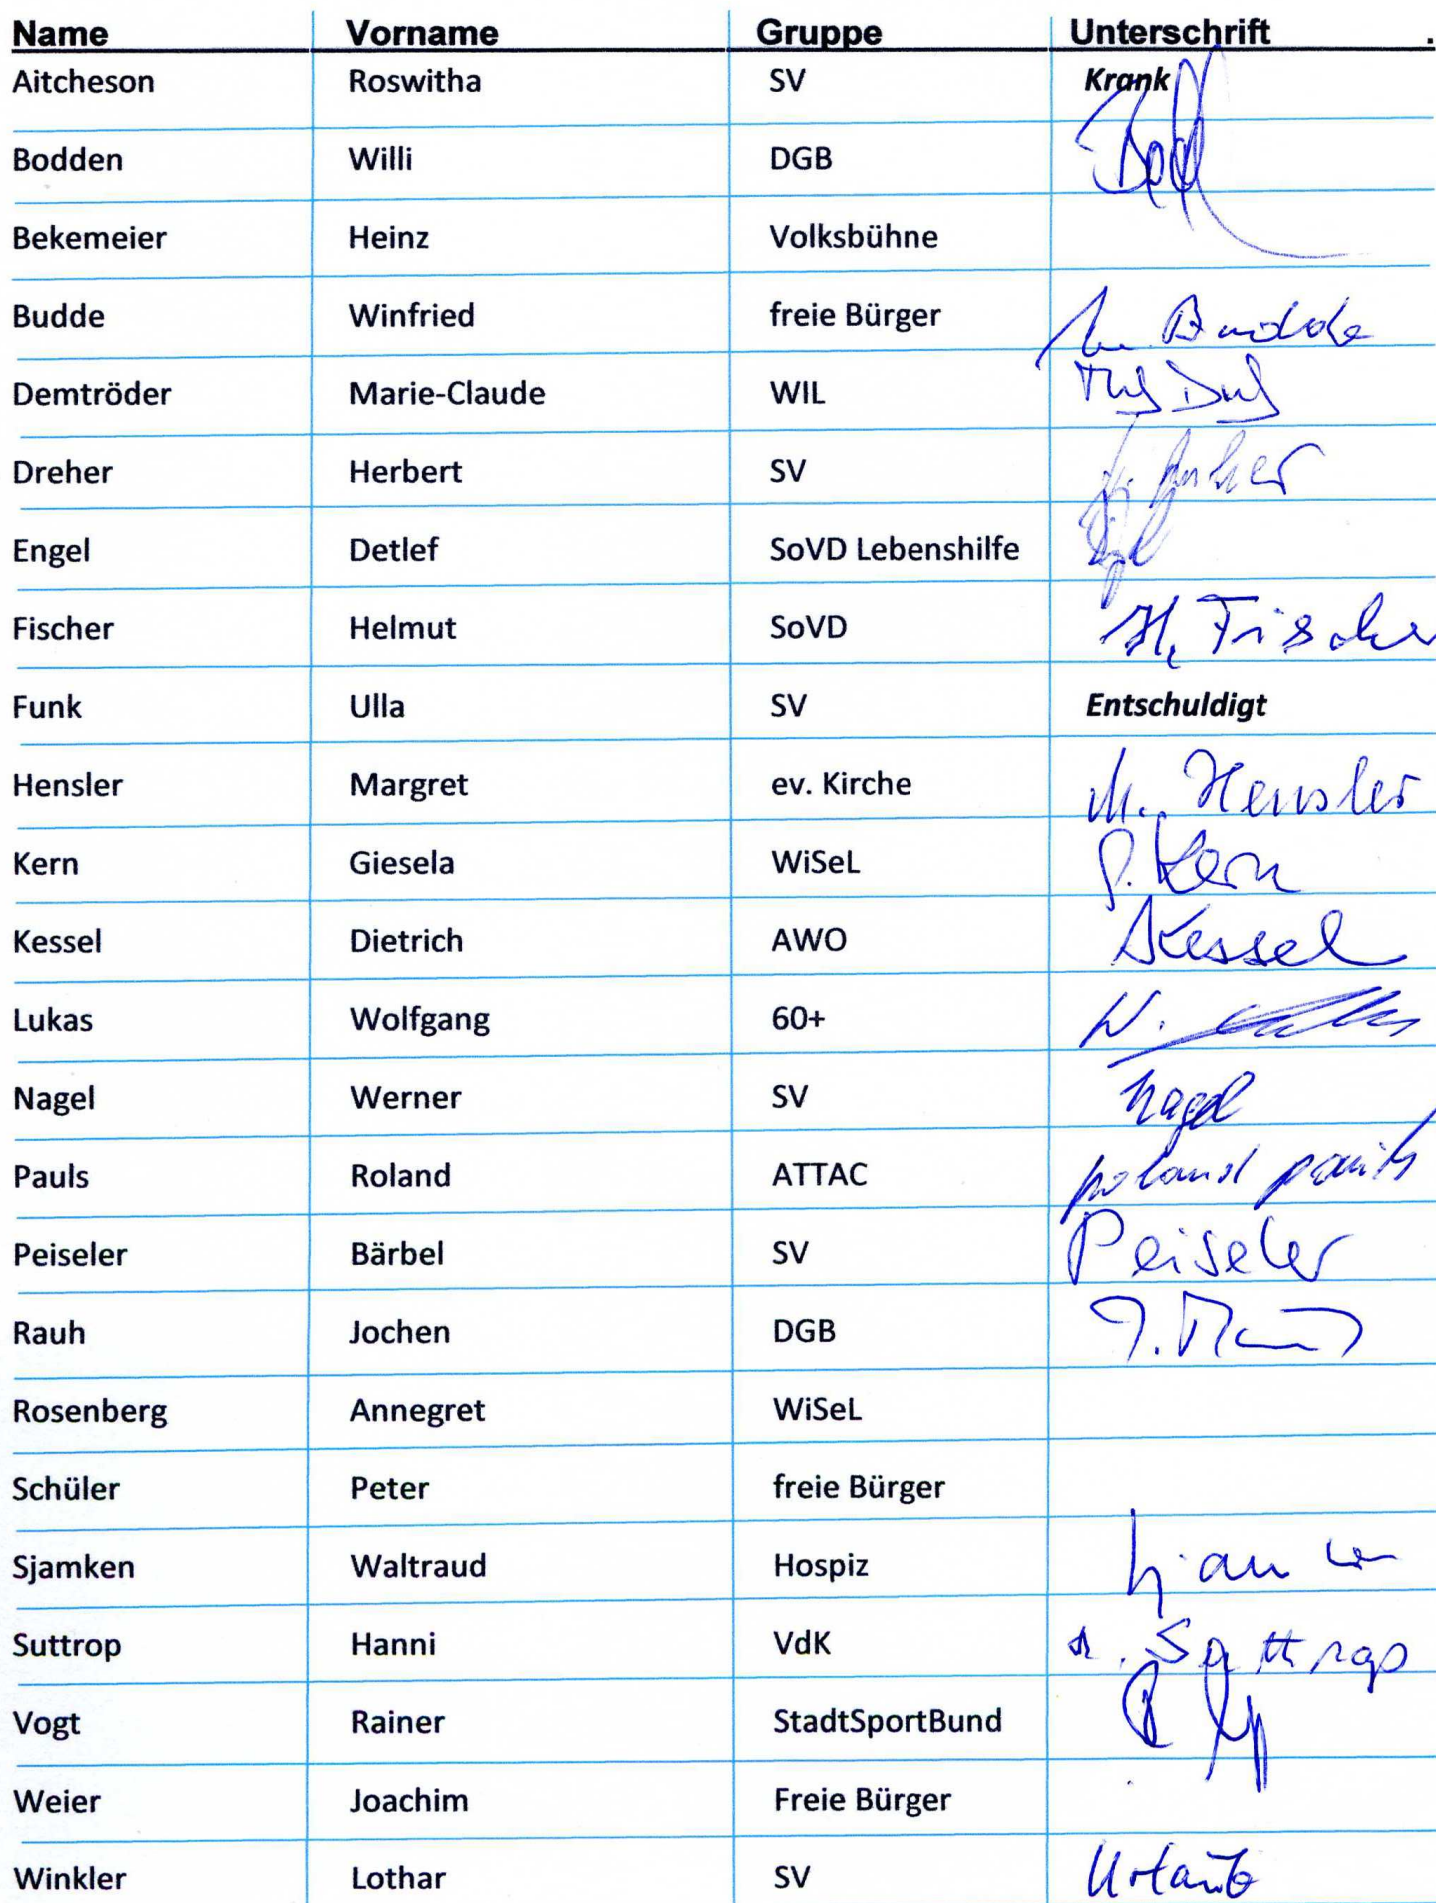 Name Vorname Gruppe Unterschrift .
Aitcheson Roswitha SV Krank
Bodden Willi DGB
Bekemeier Heinz Volksbühne
Budde Winfried freie Bürger Budde
Demtröder Marie-Claude WIL
Dreher Herbert SV
Engel Detlef SoVD Lebenshilfe
Fischer Helmut SoVD H. Fischer
Funk Ulla SV Entschuldigt
Hensler Margret ev. Kirche M. Hensler
Kern Giesela WiSeL G. Kern
Kessel Dietrich AWO Kessel
Lukas Wolfgang 60+ W.
Nagel Werner SV Nagel
Pauls Roland ATTAC roland pauls
Peiseler Bärbel SV Peiseler
Rauh Jochen DGB J.
Rosenberg Annegret WiSeL
Schüler Peter freie Bürger
Sjamken Waltraud Hospiz
Suttrop Hanni VdK Suttrop
Vogt Rainer StadtSportBund
Weier Joachim Freie Bürger
Winkler Lothar SV Urlaub